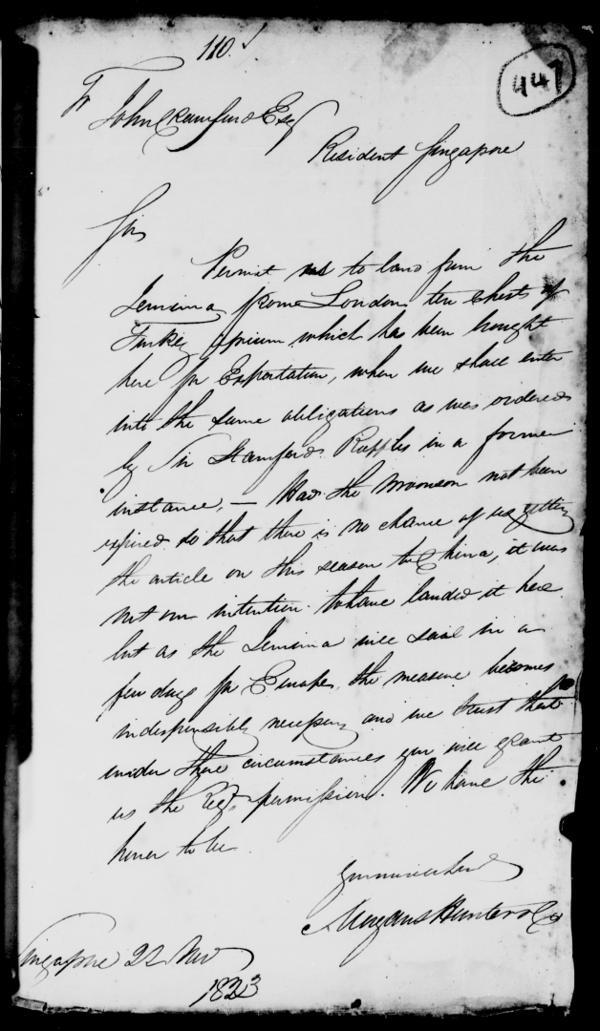 110.
447
To
John Crawfurd Esq
Resident Singapore
Sir
Permit us to land from the
Jemima from London ten chests of
Turkey Opium which has been bought
here for Exportation, when we shall enter
into the same obligations as was ordered
by Sir Stamford Raffles in a former
instance, — Had the Monsoon not been
expired so that there is no chance of us getting
the article on this season to China, it was
not our intention to have landed it here
but as the Jemima will sail in a
few days for Europe, the measure becomes
indispensibly necessary and we trust that
under these circumstances you will grant
us the Reqd. permission. We have the
honor to be
Your
Morgans Hunter & Co
Singapore 22 Nov
1823